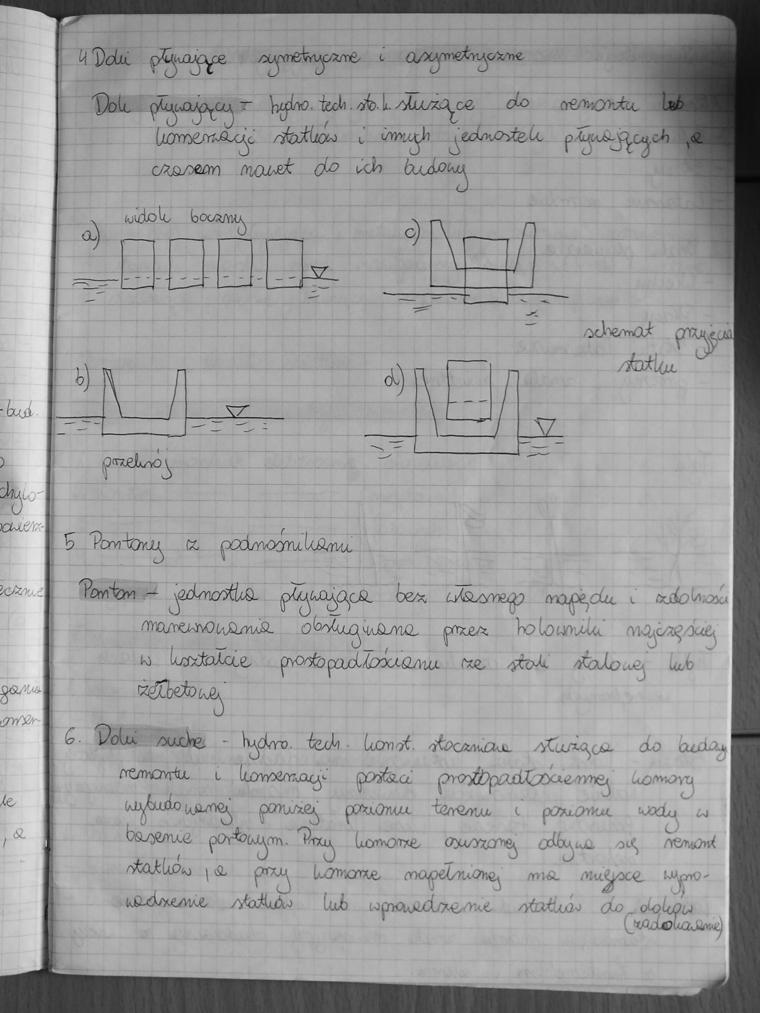 4 Doki pływające symetryczne i asymetryczne
Dok pływający - hydro. tech. sto.k. służące do remontu lub
konserwacji statków i innych jednostek pływających, a
czasem nawet do ich budowy
widok boczny
a)
c)
schemat przyjęcia
statku
b)
d)
przekrój
5 Pontony z podnośnikami
Ponton - jednostka pływająca bez własnego napędu i zdolności
manewrowania obsługiwana przez holowniki najczęściej
w kształcie prostopadłościanu ze stali stalowej lub
żelbetowej
6. Doki suche - hydro. tech. konst. stoczniowa służąca do budowy
remontu i konserwacji postaci prostopadłościennej komory
wybudowanej poniżej poziomu terenu i poziomu wody w
basenie portowym. Przy komorze osuszonej odbywa się remont
statków, a przy komorze napełnionej ma miejsce wypro-
wadzenie statków lub wprowadzenie statków do doków
(zadokowanie)
-bud.
chylo-
owierz-
ecznie
, a